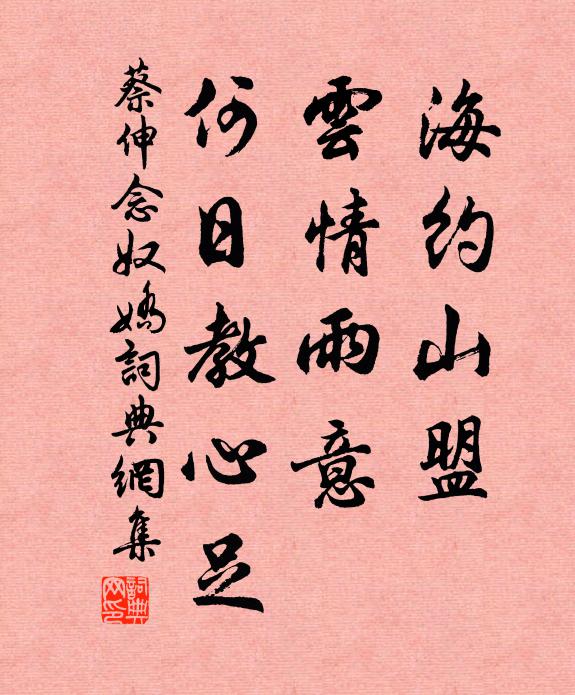 海約山盟
雲情雨意
何日教心足
蔡伸念奴嬌詞典網集
詞典
网印